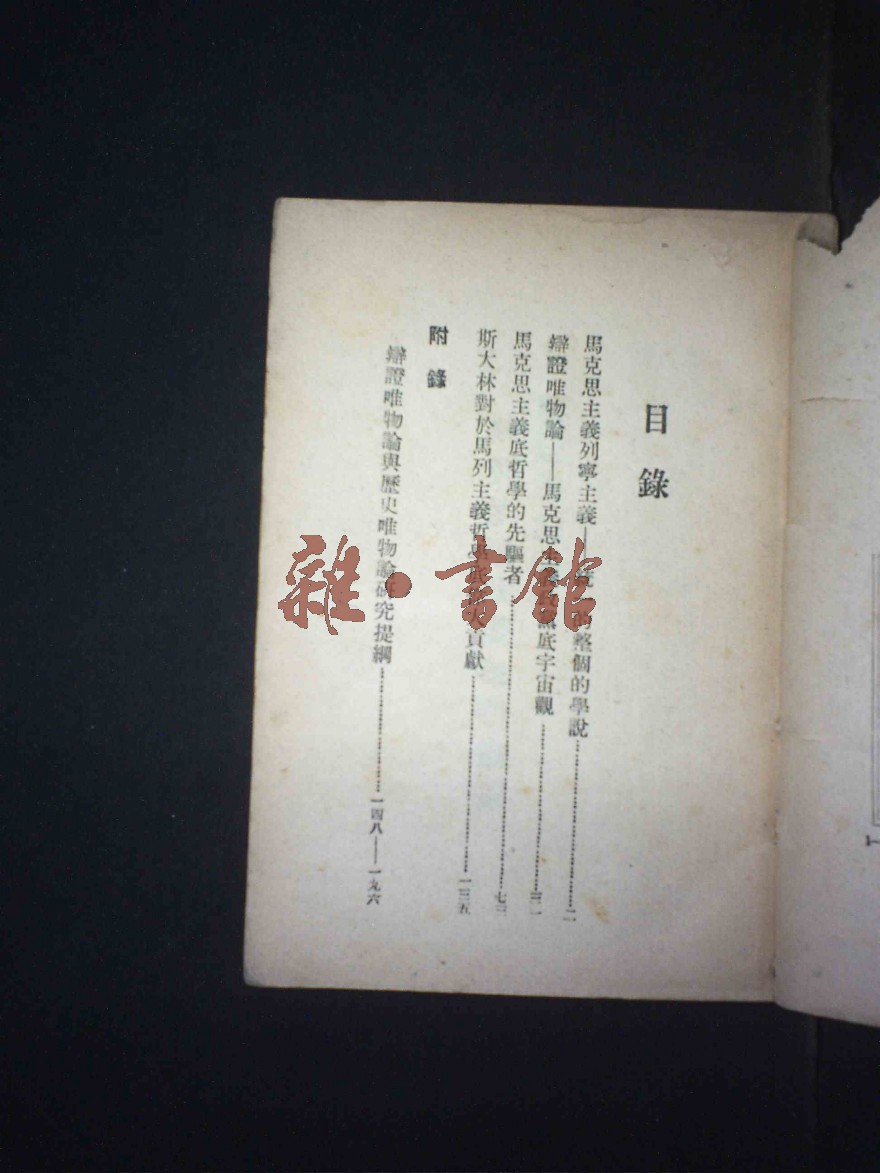 目錄
馬克思主義列寧主義——統一的整個的學說……二
辯證唯物論——馬克思列底宇宙觀……三一
馬克思主義底哲學的先驅者……七三
斯大林對於馬列主義哲學底貢獻……一三五
附錄
辯證唯物論與歷史唯物論研究提綱……一四八——一九六
雜·書館